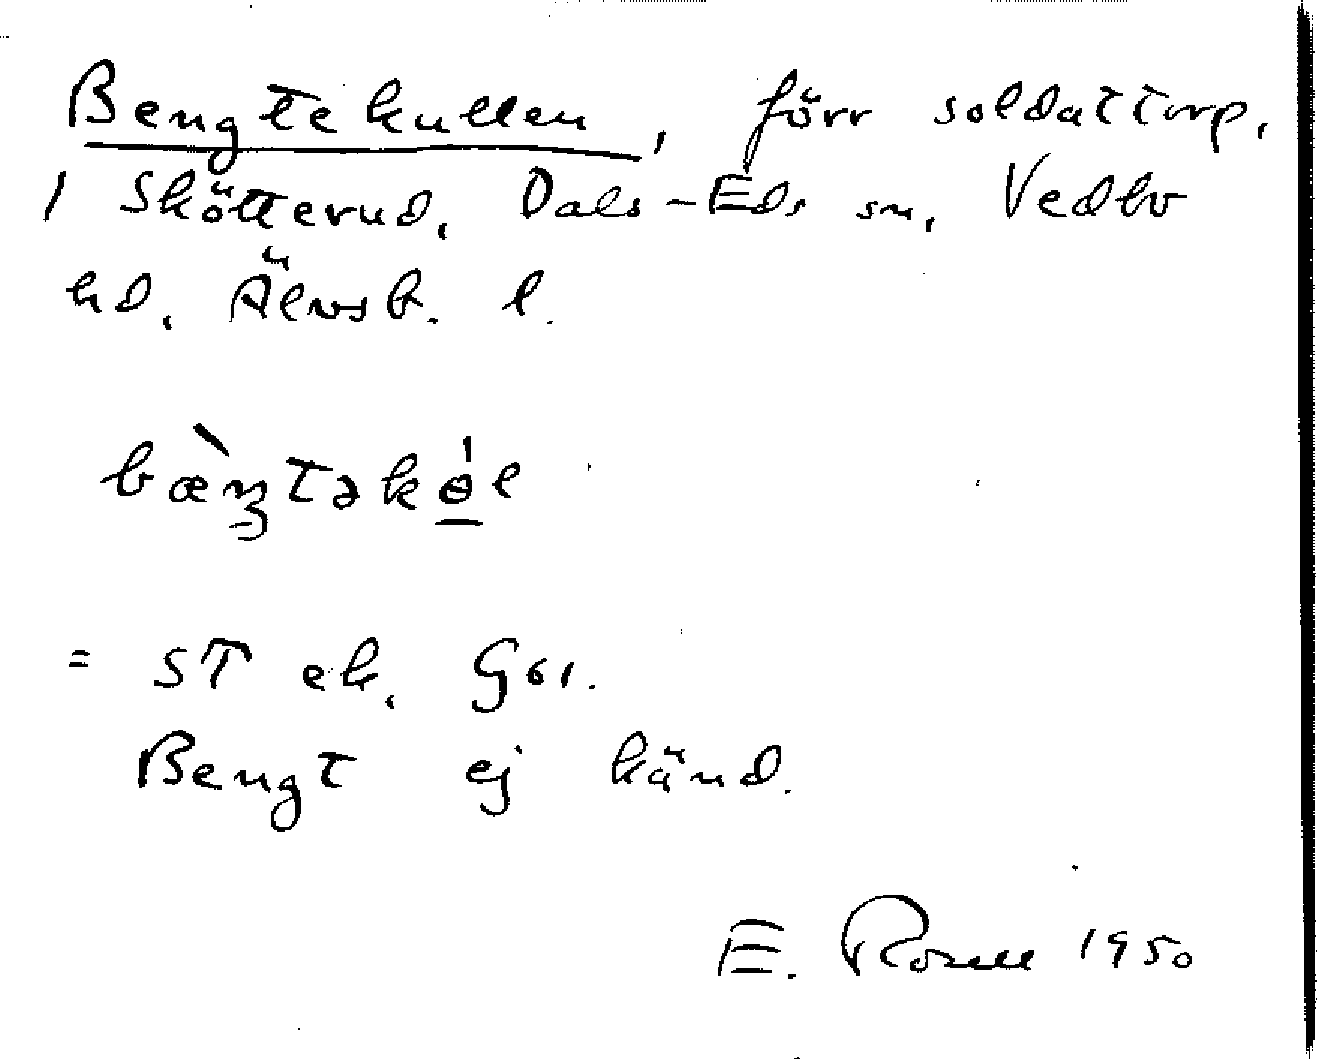 Bengtekullen, förr soldattorp,
1 Skötterud, Dals-Eds sn, Vedbo
hd, Älvsb. l.
bæ̀ŋtəkɵ́l
= ST ek. G61.
Bengt ej känd.
E. 1950